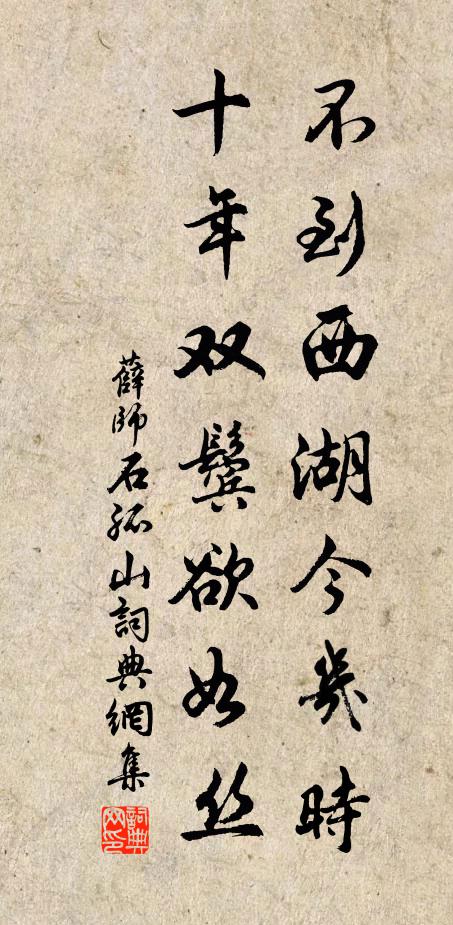 不到西湖今幾時
十年双鬓欲如丝
薛師石孤山詞典網集
詞典网印